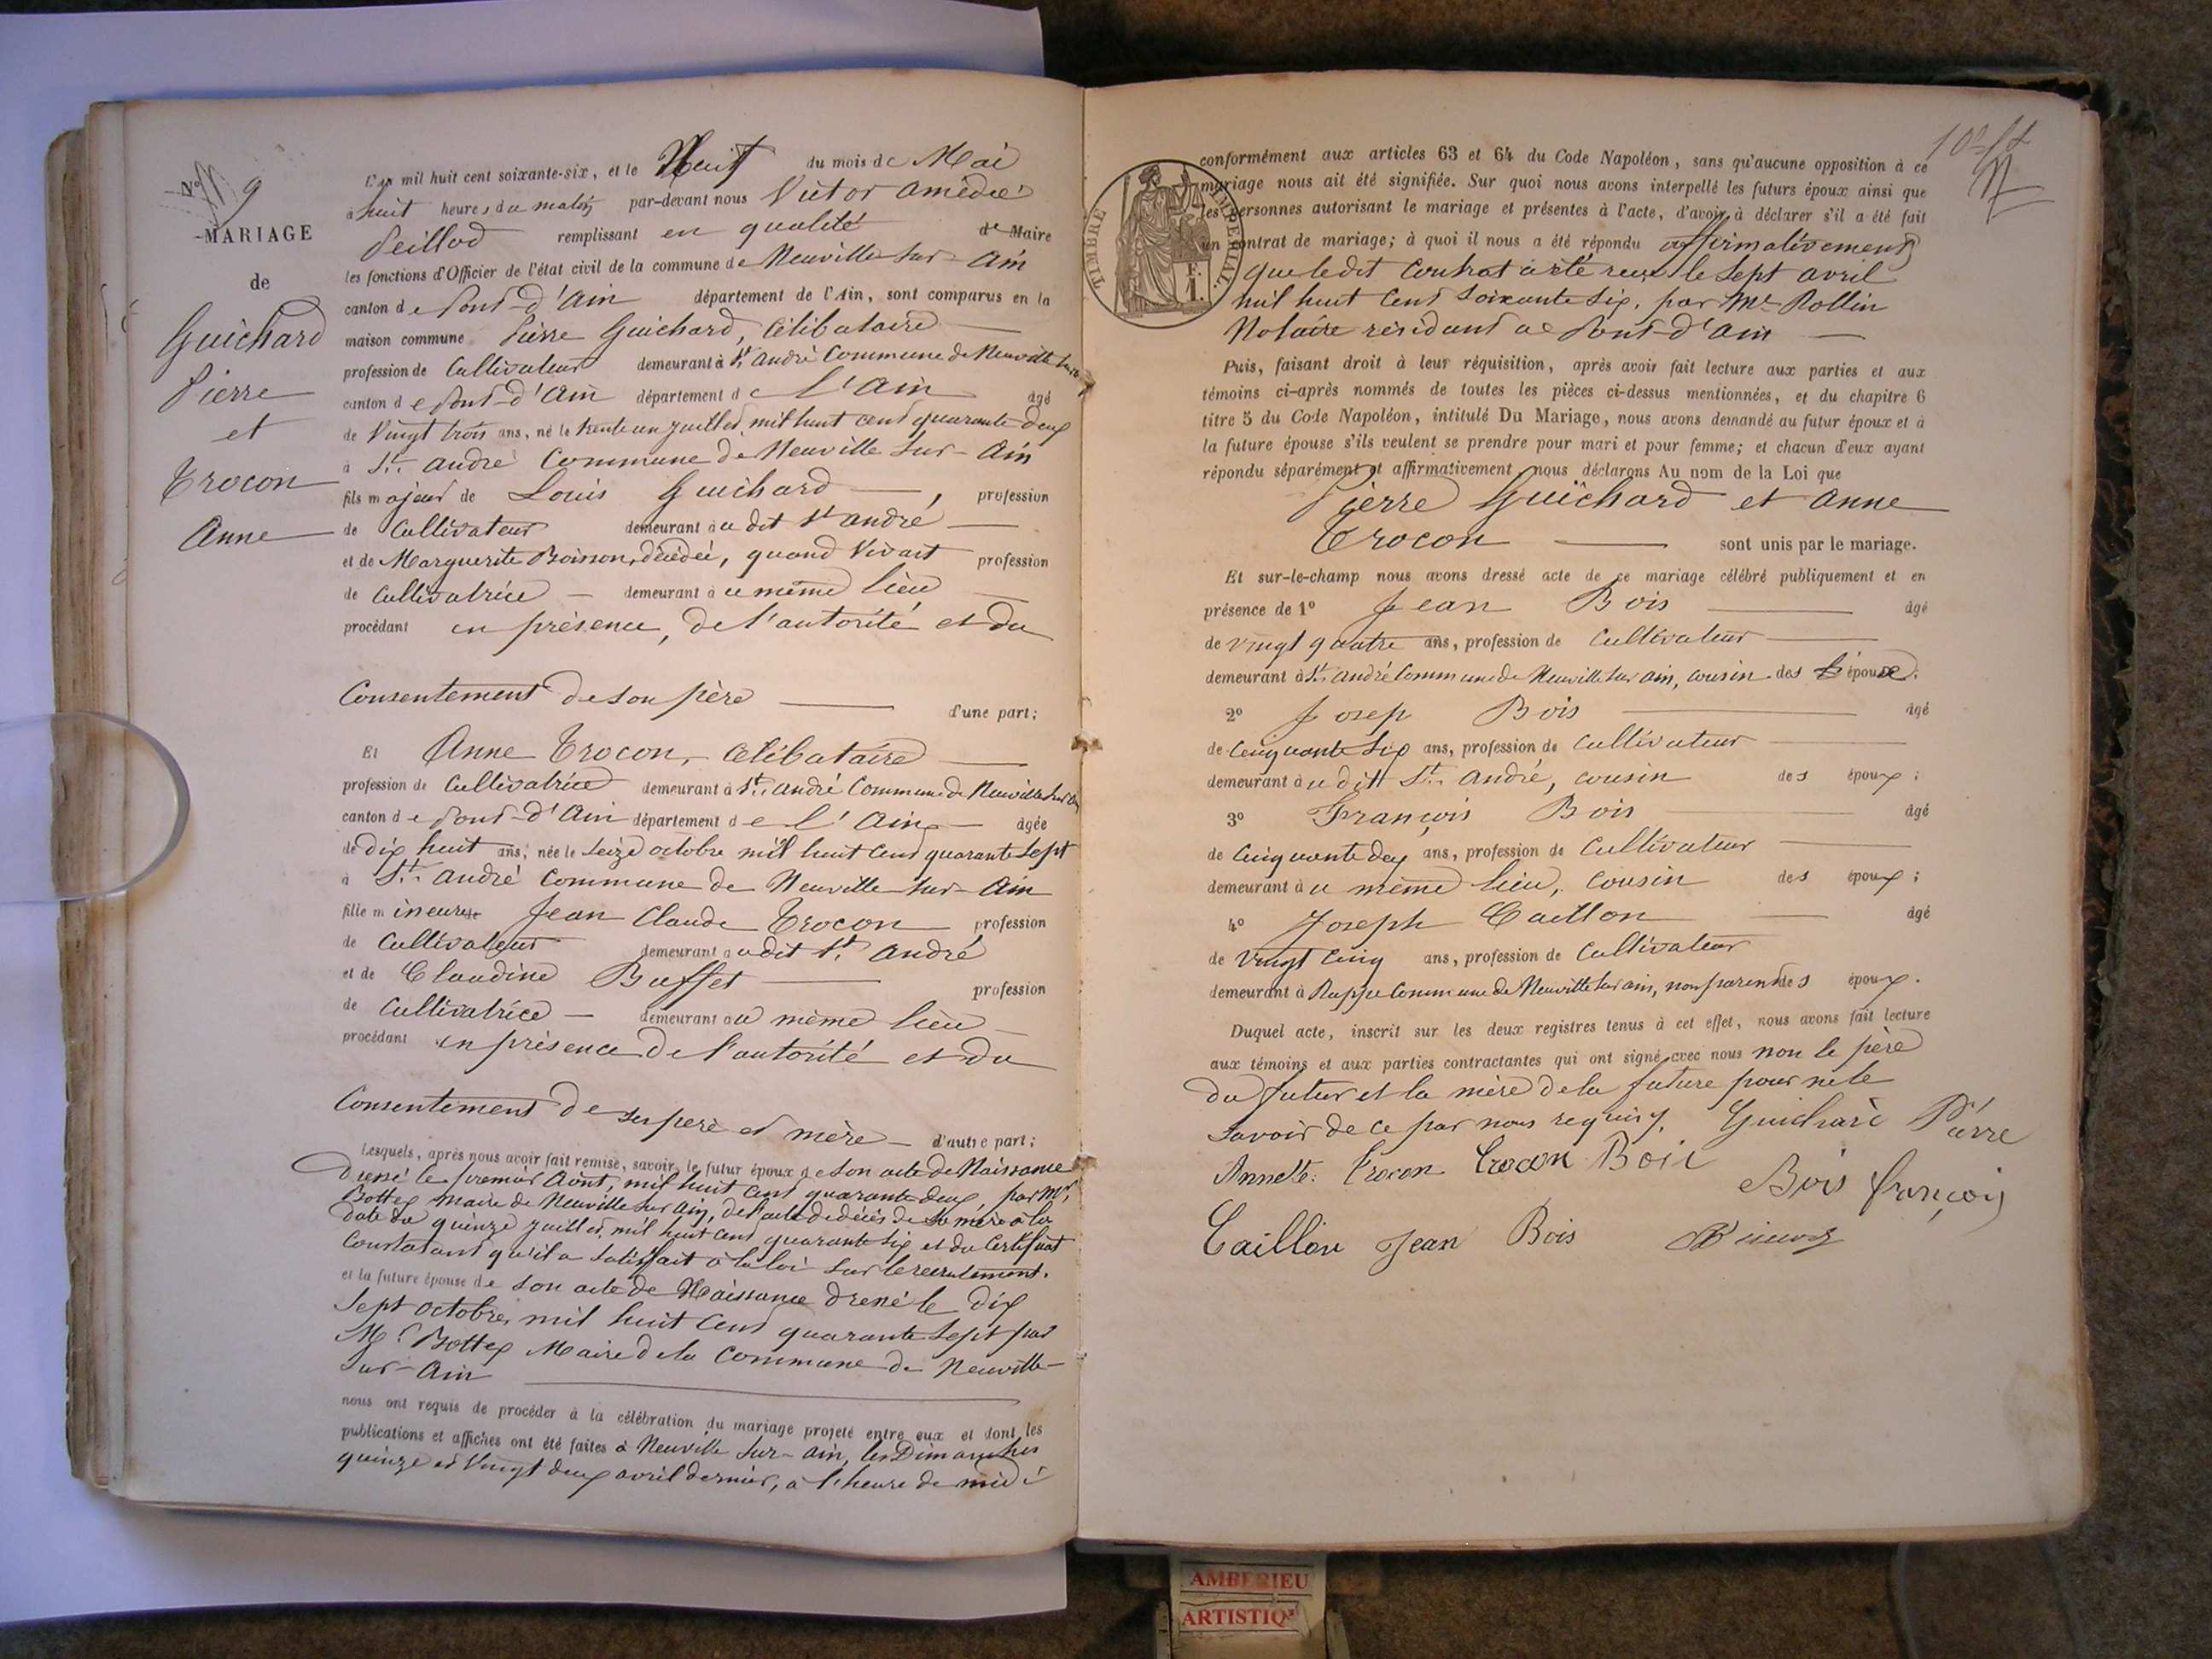 N° 9
MARIAGE
de
Guichard
Pierre
et
Trocon
Anne
L'an mil huit cent soixante-six, et le Neuf du mois de Mai
à huit heures du matin par-devant nous Victor amédée
Peillod remplissant en qualité de Maire
les fonctions d'Officier de l'état civil de la commune de Neuville sur Ain
canton de Pont-d'Ain département de l'Ain, sont comparus en la
maison commune Pierre Guichard, Célibataire
profession de Cultivateur demeurant à St. André Commune de Neuville sur Ain
canton de Pont-d'Ain département de l'Ain âgé
de Vingt trois ans, né le trente un juillet mil huit cent quarante deux
à St. André Commune de Neuville sur-Ain
fils majeur de Louis Guichard, profession
de Cultivateur demeurant au dit St André
et de Marguerite Boisson, décédée, quand Vivait profession
de Cultivatrice demeurant au même lieu
procédant en présence, de l'autorité et du
Consentement de son père d'une part;
Et Anne Trocon, Célibataire
profession de Cultivatrice demeurant à St. André Commune de Neuville sur Ain
canton de Pont-d'Ain département de l'Ain âgée
de dix huit ans, née le seize octobre mil huit cent quarante sept
à St. André Commune de Neuville sur-Ain
fille mineure de Jean Claude Trocon profession
de Cultivateur demeurant audit St. André
et de Claudine Buffet profession
de Cultivatrice demeurant au même lieu
procédant en présence de l'autorité et du
Consentement de ses père et mère d'autre part;
Lesquels, après nous avoir fait remise, savoir, le futur époux de son acte de Naissance
dressé le premier Août, mil huit cent quarante deux, par Mr.
Bottex maire de Neuville sur Ain, de l'acte de décès de sa mère à la
date du quinze juillet, mil huit cent quarante six et du Certificat
Constatant qu'il a satisfait à la loi sur le recrutement.
et la future épouse de son acte de Naissance dressé le dix
sept octobre, mil huit cent quarante sept par
Mr. Bottex Maire de la Commune de Neuville-
sur-Ain
nous ont requis de procéder à la célébration du mariage projeté entre eux et dont les
publications et affiches ont été faites à Neuville sur-ain, les Dimanches
quinze et Vingt deux avril dernier, à l'heure de midi
TIMBRE IMPERIAL.
1 F.
conformément aux articles 63 et 64 du Code Napoléon, sans qu'aucune opposition à ce
mariage nous ait été signifiée. Sur quoi nous avons interpellé les futurs époux ainsi que
les personnes autorisant le mariage et présentes à l'acte, d'avoir à déclarer s'il a été fait
un contrat de mariage; à quoi il nous a été répondu affirmativement
que le dit Contrat a été reçu le sept avril
mil huit cent soixante six, par Me Rollin
Notaire résidant à Pont-d'ain
Puis, faisant droit à leur réquisition, après avoir fait lecture aux parties et aux
témoins ci-après nommés de toutes les pièces ci-dessus mentionnées, et du chapitre 6
titre 5 du Code Napoléon, intitulé Du Mariage, nous avons demandé au futur époux et à
la future épouse s'ils veulent se prendre pour mari et pour femme; et chacun d'eux ayant
répondu séparément et affirmativement nous déclarons Au nom de la Loi que
Pierre Guichard et Anne
Trocon sont unis par le mariage.
Et sur-le-champ nous avons dressé acte de ce mariage célébré publiquement et en
présence de 1° Jean Bois âgé
de vingt quatre ans, profession de Cultivateur
demeurant à St. André Commune de Neuville sur ain, cousin des épouse;
2° Josep Bois âgé
de Cinquante six ans, profession de Cultivateur
demeurant au dit St. André, cousin des époux;
3° François Bois âgé
de Cinquante deux ans, profession de Cultivateur
demeurant au même lieu, Cousin des époux;
4° Joseph Caillon âgé
de Vingt cinq ans, profession de Cultivateur
demeurant à Rappe Commune de Neuville sur ain, non parent des époux.
Duquel acte, inscrit sur les deux registres tenus à cet effet, nous avons fait lecture
aux témoins et aux parties contractantes qui ont signé avec nous non le père
du futur et la mère de la future pour ne le
savoir de ce par nous requis. Guichard Pierre
Annette Trocon Trocon Bois Bois françois
Caillon Jean Bois
AMBERIEU
ARTISTIQ